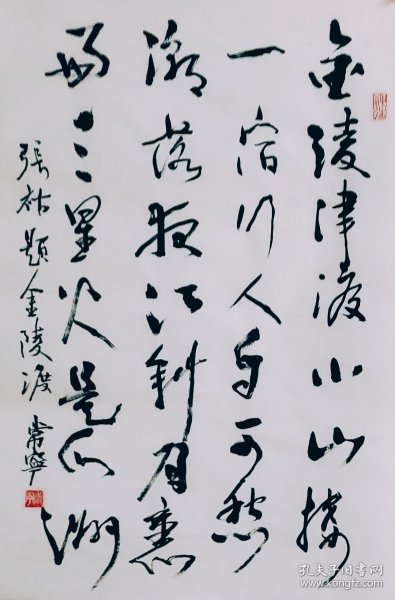 金陵津渡小山樓
一宿行人自可愁
潮落夜江斜月裏
兩三星火是瓜洲
張祜題金陵渡 常寧
孔夫子旧书网
www.kongfz.com